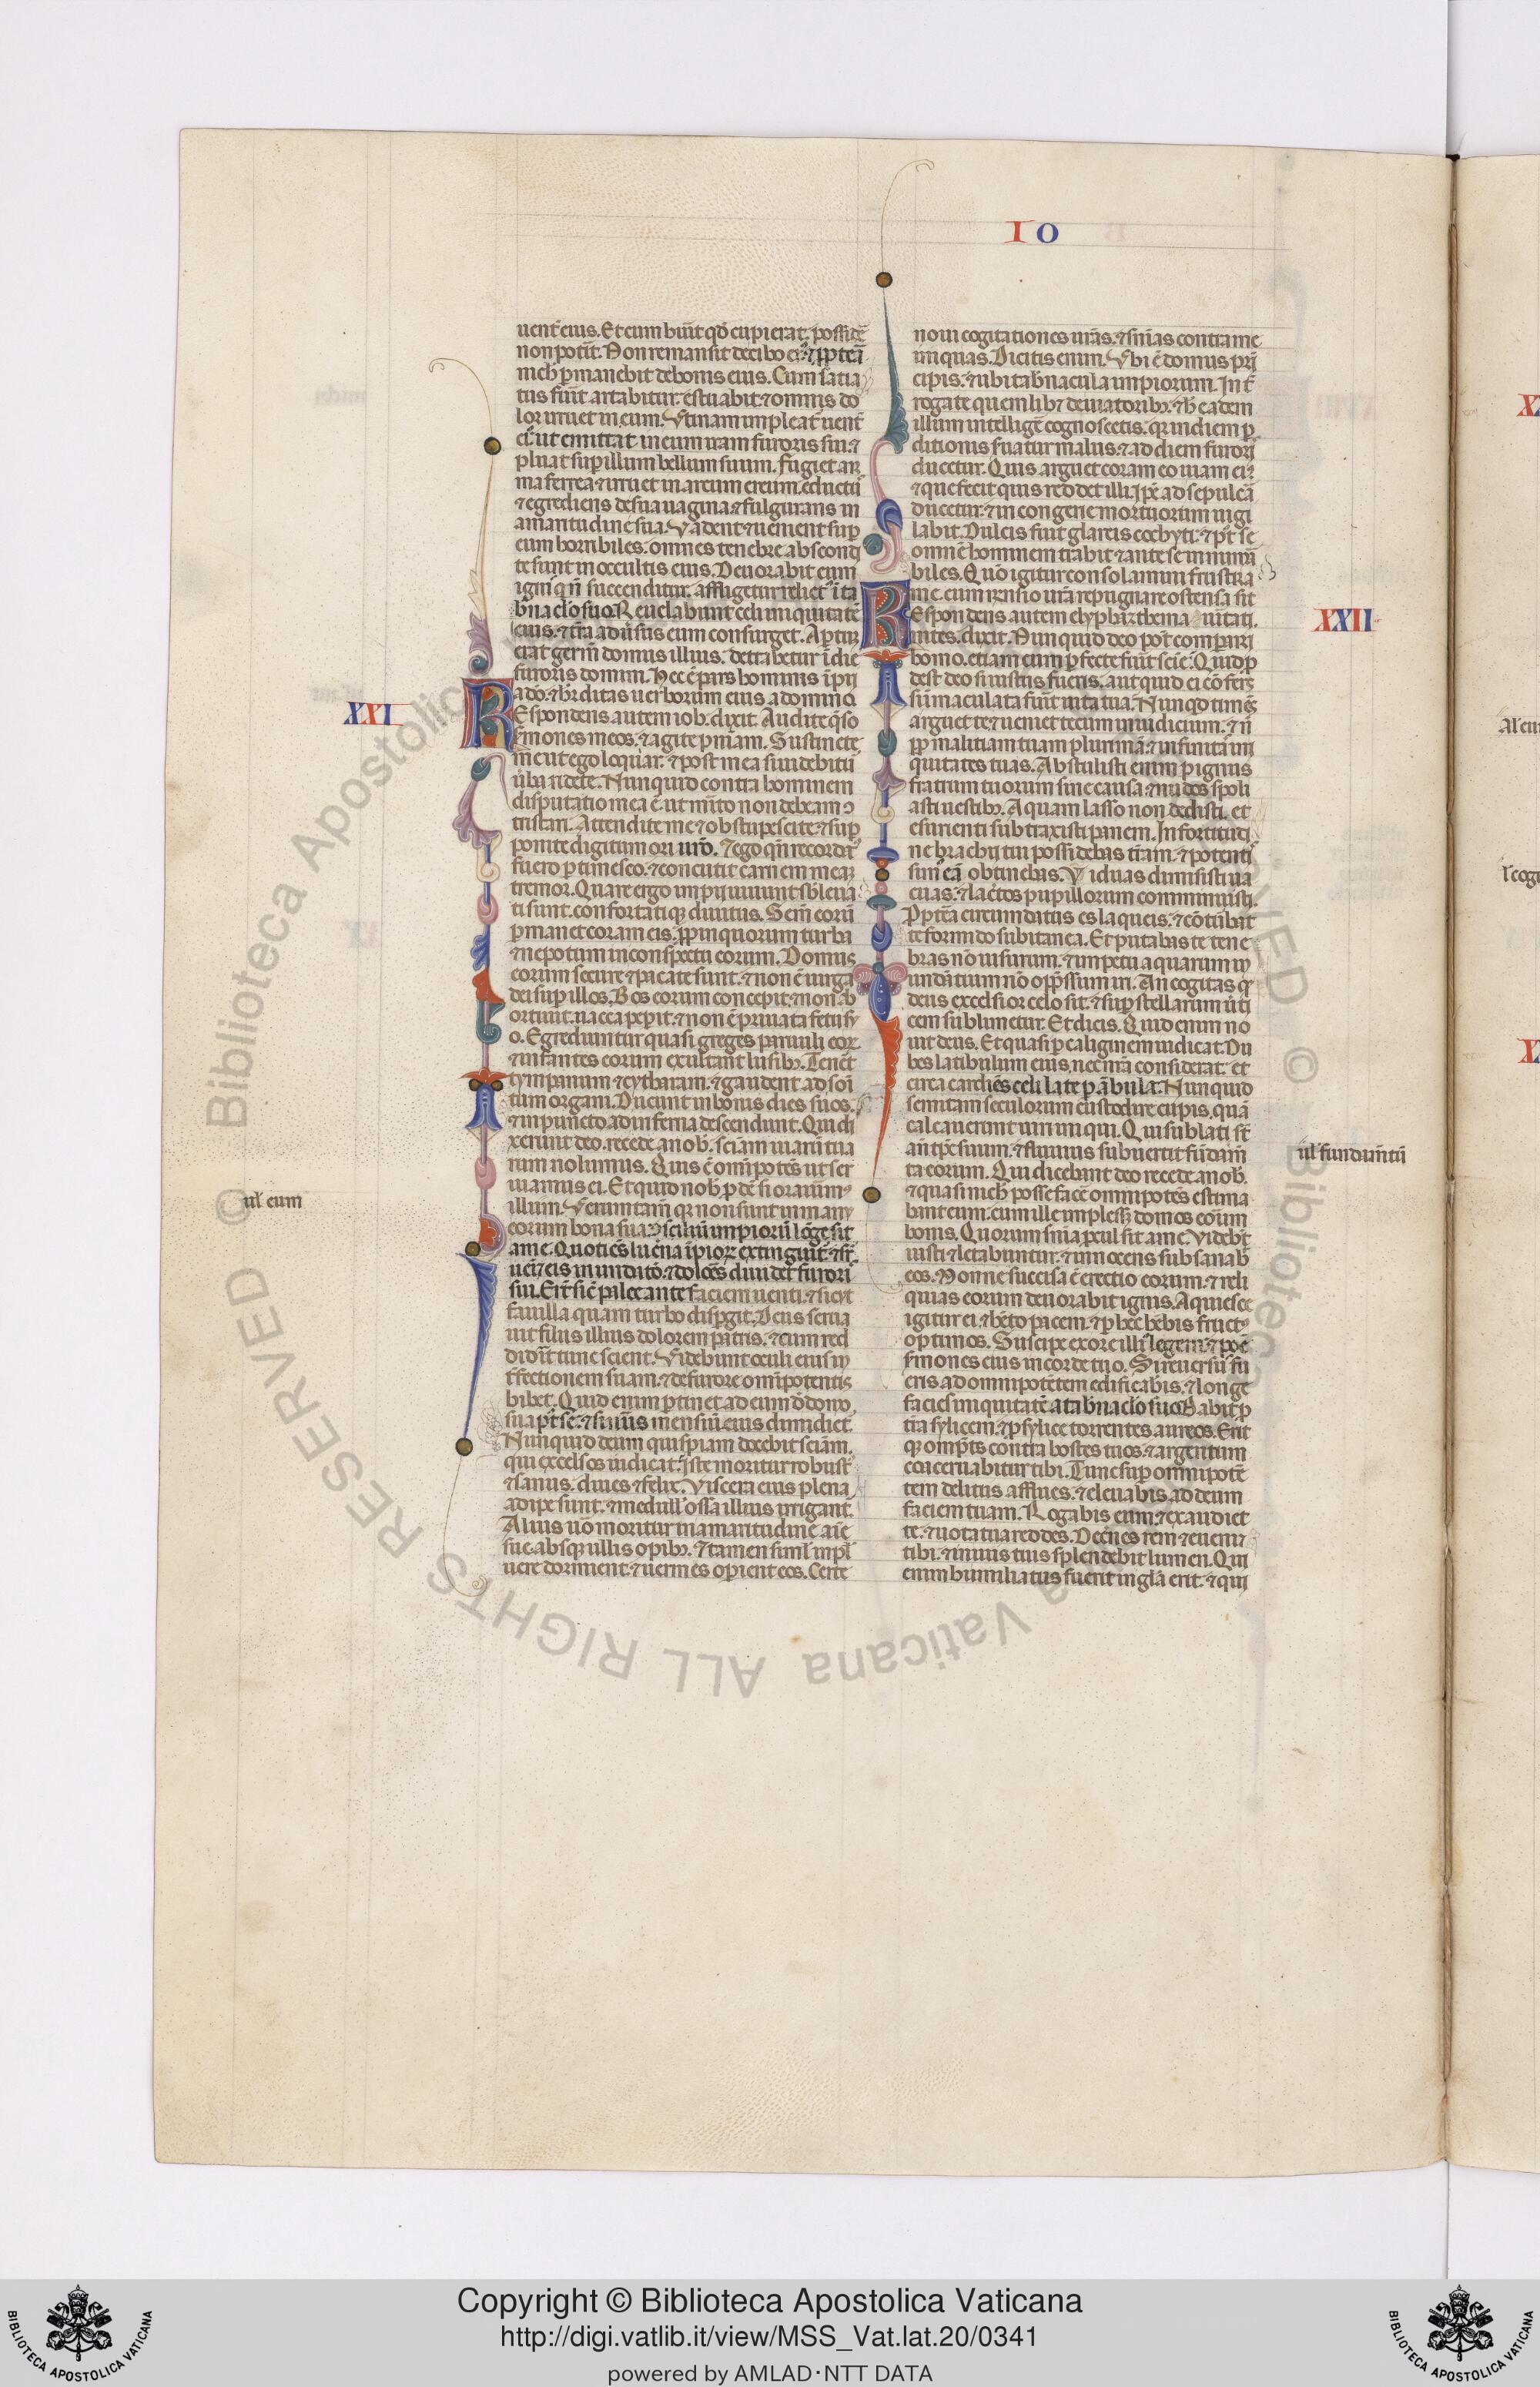 IO
uent̄ eius. Et cum hūit qd̓ cupierat. possidē
non pot̓it. Non remansit de cibo ei᷒. ⁊ ꝓpt̓ea
nichͥ ꝑmanebit de bonis eius. Cum satia
tus fūit artabitur. estuabit. ⁊ omnis do
lor irruet in eum. Vtinam impleat̄ uent̄
ei᷒. ut emittat in eum iram furoris sui. ⁊
pluat sup illum bellum suum. Fugiet ar
ma ferrea ⁊ irruet in arcum ereum. eductū
⁊ egrediens de sua uagina. ⁊ fulgurans in
amaritudine sua. Vadent ⁊ uenient sup
eum horribiles. omnes tenebre abscondi
te sunt in occultis eius. Deuorabit eum
ignis q̇ n̄ succenditur. affligetur relict᷒ ī ta
bn̄aclo suo. Reuelabunt celi iniquitatē
eius. ⁊ t̄ra adūsus eum consurget. Aptum
erit germ̄ domus illius. detrahetur ī die
furoris domini. Hec ē pars hominis īpii
a dō. ⁊ hr̄ditas uerborum eius a domino.
XXI
Respondens autem iob. dixit. Audite q̄so
s̄mones meos. ⁊ agite pn̄iam. Sustinete
me ut ego loquar. ⁊ post mea si uidebit̄
ūba ridete. Nunquid contra hominem
disputatio mea ē. ut m̄ito non debeam ↄ
tristari. Attendite me ⁊ obstupescite. ⁊ sup
ponite digitum ori ur̄o. ⁊ ego qn̄ recordat᷒
fuero ꝑtimesco. ⁊ concutit carnem meaꝫ
tremor. Quare ergo impii uiuunt. sb̓leua
ti sunt. confortatiqꝫ diuitiis. Sem̄ eorū
ꝑmanet coram eis. ꝓpinquorum turba
⁊ nepotum in conspectu eorum. Domus
eorum secure ⁊ pacate sunt. ⁊ non ē uirga
dei sup illos. Bos eorum concepit. ⁊ non ab
ortiuit. uacca pepit. ⁊ non ē priuata fetu su
o. Egrediuntur quasi greges paruuli eorꝫ
⁊ infantes eorum exultant lusibꝫ. Tenēt
tympanum ⁊ cytharam. ⁊ gaudent ad soni
tum organi. Ducunt in bonis dies suos.
⁊ in puncto ad inferna descendunt. Qui di
xerunt deo. recede a nob̓. sciām uiarū tua
rum nolumus. Quis ē om̄ipotēs ut ser
uiamus ei. Et quid nob̓ ꝓdē si orauim᷒
illum. Veruntam̄ qꝫ non sunt in manu
ul̓ eum
eorum bona sua ↄsiliū impiorū lōge sit
a me. Quotiēs lucerna īpiorꝫ extinguit̄. ⁊ sr̄
ueīet eis inundatō. ⁊ dolores diuidet furoris
sui. Erūt sic̄ palee ante faciem uenti. ⁊ sicut
fauilla quam turbo dispgit. Deus serua
uit filiis illius dolorem patris. ⁊ cum red
didit̄ tunc sciet. Videbunt oculi eius in
t̄fectionem suam. ⁊ de furore om̄ipotentis
bibet. Quid enim ptinet ad eum d̓ domo
sua p̓t se. ⁊ si nūs mensiū eius dimidiet̄.
Nunquid deum quispiam docebit sciām.
qui excelsos iudicat. Iste moritur robust᷒
⁊ sanus. diues ⁊ felix. Viscera eius plena
adipe sunt. ⁊ medull̓ ossa illius irrigant̄.
Alius ūo moritur in amaritudine aīe
sue. absqꝫ ullis opibꝫ. ⁊ tamen siml̓ in pul
uere dormient. ⁊ uermes opient eos. Certe
noui cogitationes ur̄as. ⁊ sn̄ias contra me
iniquas. Dicitis enim. Vbi ē domus prī
cipis. ⁊ ubi tabn̄acula impiorum. Int̄
rogate quemlibꝫ de uiatoribꝫ. ⁊ h̓ eadem
illum intelligē cognoscetis. qꝫ in diem ꝑ
ditionis ſuatur malus. ⁊ ad diem furoris
ducetur. Quis arguet coram eo uiam ei᷒.
⁊ que fecit quis reddet illi. Ip̄e ad sepulcͣ
ducetur. ⁊ in congerie mortuorum uigi
labit. Dulcis fuit glareis cochyti. ⁊ p̓t se
omnē hominem trahit ⁊ ante se innum̄a
biles. Quō igitur consolamini frustra
me. cum rn̄sio ur̄a repugnare ostensa sit
XXII
Respondens autem elyphaz themanites.
dixit. Nunquid deo pot̄ comparari
homo. etiam cum ꝑfecte fūit scīe. Quid ꝓ
dest deo si iustus fueris. aut quid ei cōfers
si īmaculata fūit uita tua. Nunqd̓ timēs
arguet te. ⁊ ueniet tecum in iudicium. ⁊ n̄
ꝓp malitiam tuam plurimā. ⁊ infinitas ini
quitates tuas. Abstulisti enim pignus
fratrum tuorum sine causa. ⁊ nudos spoli
asti uestibꝫ. Aquam lasso non dedisti. et
esurienti subtraxisti panem. In fortitudi
ne brachii tui possidebas t̄ram. ⁊ potentis
sim᷒ eā obtinebas. Viduas dimisisti ua
cuas. ⁊ lac̄tos pupillorum comminuisti.
Ꝓpt̓ea circumdatus es laqueis. ⁊ cōturbat
te formido subitanea. Et putabas te tene
bras nō uisurum. ⁊ impetu aquarum in
undātium nō opp̄ssum iri. An cogitas qꝫ
deus excelsior celo sit. ⁊ sup stellarum ūti
cem sublimetur. Et dicis. Quid enim no
uit deus. Et quasi ꝑ caliginem iudicat. Nu
bes latibulum eius. nec nr̄a considerat. et
circa cardiēs celi late ꝑābulat. Nunquid
semitam seculorum custodire cupis. quā
calcauerunt uiri iniqui. Qui sublati sūt
an̄ tp̄s suum. ⁊ fluuius subuertit fūdam̄
ul̓ fundūntū
ta eorum. Qui dicebant deo recede a nob̓.
⁊ quasi nichͥ posse facē omnipotēs estima
bant eum. cum ille implesset domos eorum
bonis. Quorum sn̄ia pcul sit a me. Videbūt
iusti ⁊ letabuntur. ⁊ innocens subsanabit
eos. Nonne succisa ē erectio eorum. ⁊ reli
quias eorum deuorabit ignis. Aquiesce
igitur ei. ⁊ hēto pacem. ⁊ ꝑ hec hēbis fruct᷒
optimos. Suscipe ex ore illi᷒ legem. ⁊ pōe
s̄mones eius in corde tuo. Si reuersus fu
eris ad omnipotētem edificabis. ⁊ longe
facies iniquitatē a tabn̄aclo tuo. Dabit ꝓ
t̄ra sylicem. ⁊ ꝓ sylice torrentes aureos. Erit
qꝫ omp̄ts contra hostes tuos. ⁊ argentum
coaceruabitur tibi. Tunc sup omnipotē
tem delitiis afflues. ⁊ eleuabis ad deum
faciem tuam. Rogabis eum. ⁊ exaudiet
te. ⁊ uota tua reddes. Decernes rem ⁊ ueniet
tibi. ⁊ in uiis tuis splendebit lumen. Qui
enim humiliatus fuerit in gl̄a erit. ⁊ qui
Copyright © Biblioteca Apostolica Vaticana
http://digi.vatlib.it/view/MSS_Vat.lat.20/0341
powered by AMLAD·NTT DATA
BIBLIOTECA APOSTOLICA VATICANA
BIBLIOTECA APOSTOLICA VATICANA
© Biblioteca Apostolica Vaticana ALL RIGHTS RESERVED